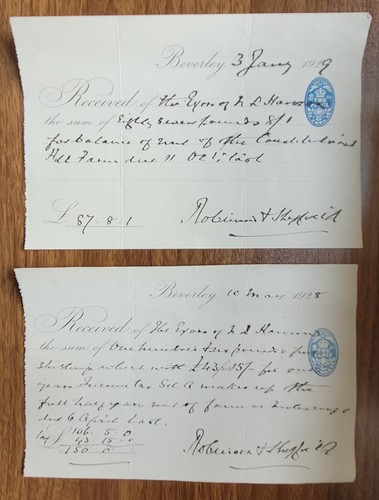 Beverley 3 Jany 1929
Received of The Exors of
the sum of Eighty seven pounds 8/1
for balance of rent of the
Hill Farm due 11 Oct last
£ 87.8.1
Robinson & Sheffield
Beverley 10 May 1928
Received of The Exors of
the sum of One hundred & six pounds & five
shillings which with £43.15/- for one
years Income tax Sch A makes up the
full half years rent of farm at
due 6 April last.
£ 106. 5. 0
tax 43 15. 0
150 0
Robinson & Sheffield